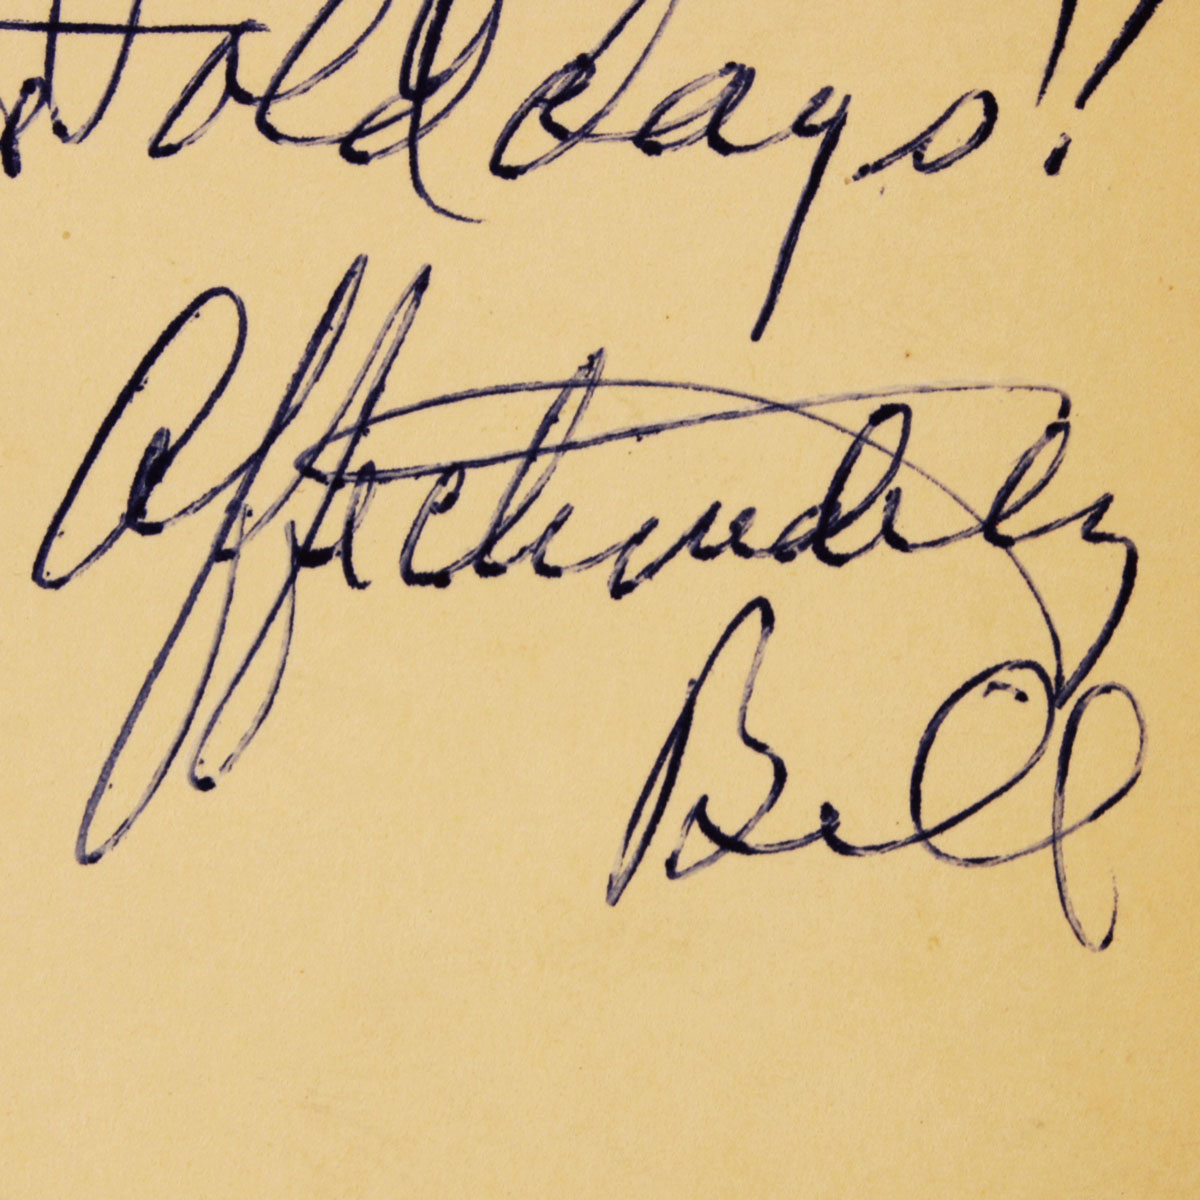 Holidays!!
Affectionately
Bill